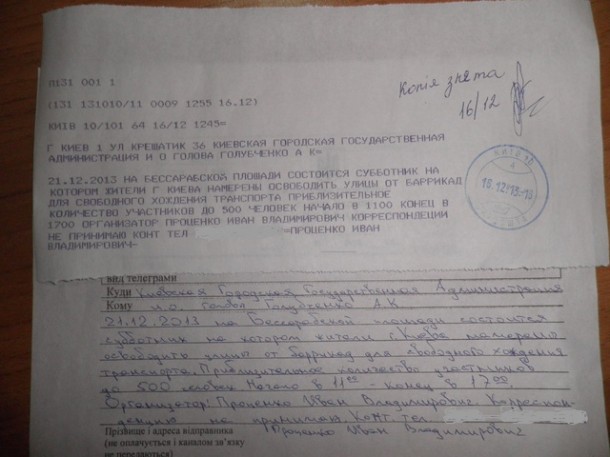 П131 001 1
(131 131010/11 0009 1255 16.12)
КИЇВ 10/101 64 16/12 1245=
Копія знята
16/12
Г КИЕВ 1 УЛ КРЕЩАТИК 36 КИЕВСКАЯ ГОРОДСКАЯ ГОСУДАРСТВЕННАЯ
АДМИНИСТРАЦИЯ И О ГОЛОВА ГОЛУБЧЕНКО А К=
21.12.2013 НА БЕССАРАБСКОЙ ПЛОЩАДИ СОСТОИТСЯ СУББОТНИК НА
КОТОРОМ ЖИТЕЛИ Г КИЕВА НАМЕРЕНЫ ОСВОБОДИТЬ УЛИЦЫ ОТ БАРРИКАД
ДЛЯ СВОБОДНОГО ХОЖДЕНИЯ ТРАНСПОРТА ПРИБЛИЗИТЕЛЬНОЕ
КОЛИЧЕСТВО УЧАСТНИКОВ ДО 500 ЧЕЛОВЕК НАЧАЛО В 1100 КОНЕЦ В
1700 ОРГАНИЗАТОР ПРОЦЕНКО ИВАН ВЛАДИМИРОВИЧ КОРРЕСПОНДЕЦИИ
НЕ ПРИНИМАЮ КОНТ ТЕЛ =ПРОЦЕНКО ИВАН
ВЛАДИМИРОВИЧ-
вид телеграми
Куди Киевская Городская Государственная Администрация
Кому и.о. голова Голубченко А.К
21.12.2013 на Бессарабской площади состоится
субботник на котором жители г. Киева намерено
освободить улицы от баррикад для свободного хождения
транспорта. Приблизительное количество участников
до 500 человек Начало в 11⁰⁰ - конец в 17⁰⁰.
Организатор: Проценко Иван Владимирович. Корреспон-
денцию не принимаю. Конт. тел.
Прізвище і адреса відправника Проценко Иван Владимирович
(не оплачується і каналом зв'язку
не передаються)